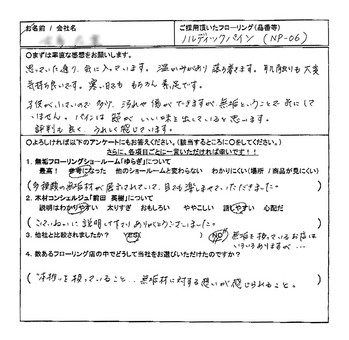 お名前 / 会社名
ご採用頂いたフローリング(品番等)
ノルディックパイン (NP-06)
○まずは率直な感想をお願いします。
思っていた通り、気に入っています。温かみがあり落ち着きます。肌触りも大変
気持ち良いです。寒い日ももちろん最高です。
子供が小さいので多少、汚れや傷ができますが無垢ということで気にして
いません。パインは節がいい味を出していると思います。
評判も良く、うれしく感じています。
○よろしければ以下のアンケートにもお答えください。(該当するところに○をしてください。)
さらに、各項目ごとに一言いただければ幸いです!!
1. 無垢フローリングショールーム「ゆらぎ」について
最高! 参考になった 他のショールームと変わらない わかりにくい(場所 / 商品が見にくい)
(多種類の無垢材が展示されていて、目でも楽しませていただきました。)
2. 木材コンシェルジュ「前田 英樹」について
説明はわかりやすい 太りすぎ おもしろい ややこしい 話しやすい 心配だ
(ていねいに説明して下さりありがとうございました。)
3. 他社と比較されましたか? YES NO 無垢を扱っているお店は
いろいろありますが…
4. 数あるフローリング店の中でどうして当社をお選びいただけたのですか?
("本物"を扱っていること、無垢材に対する想いが感じられること。)